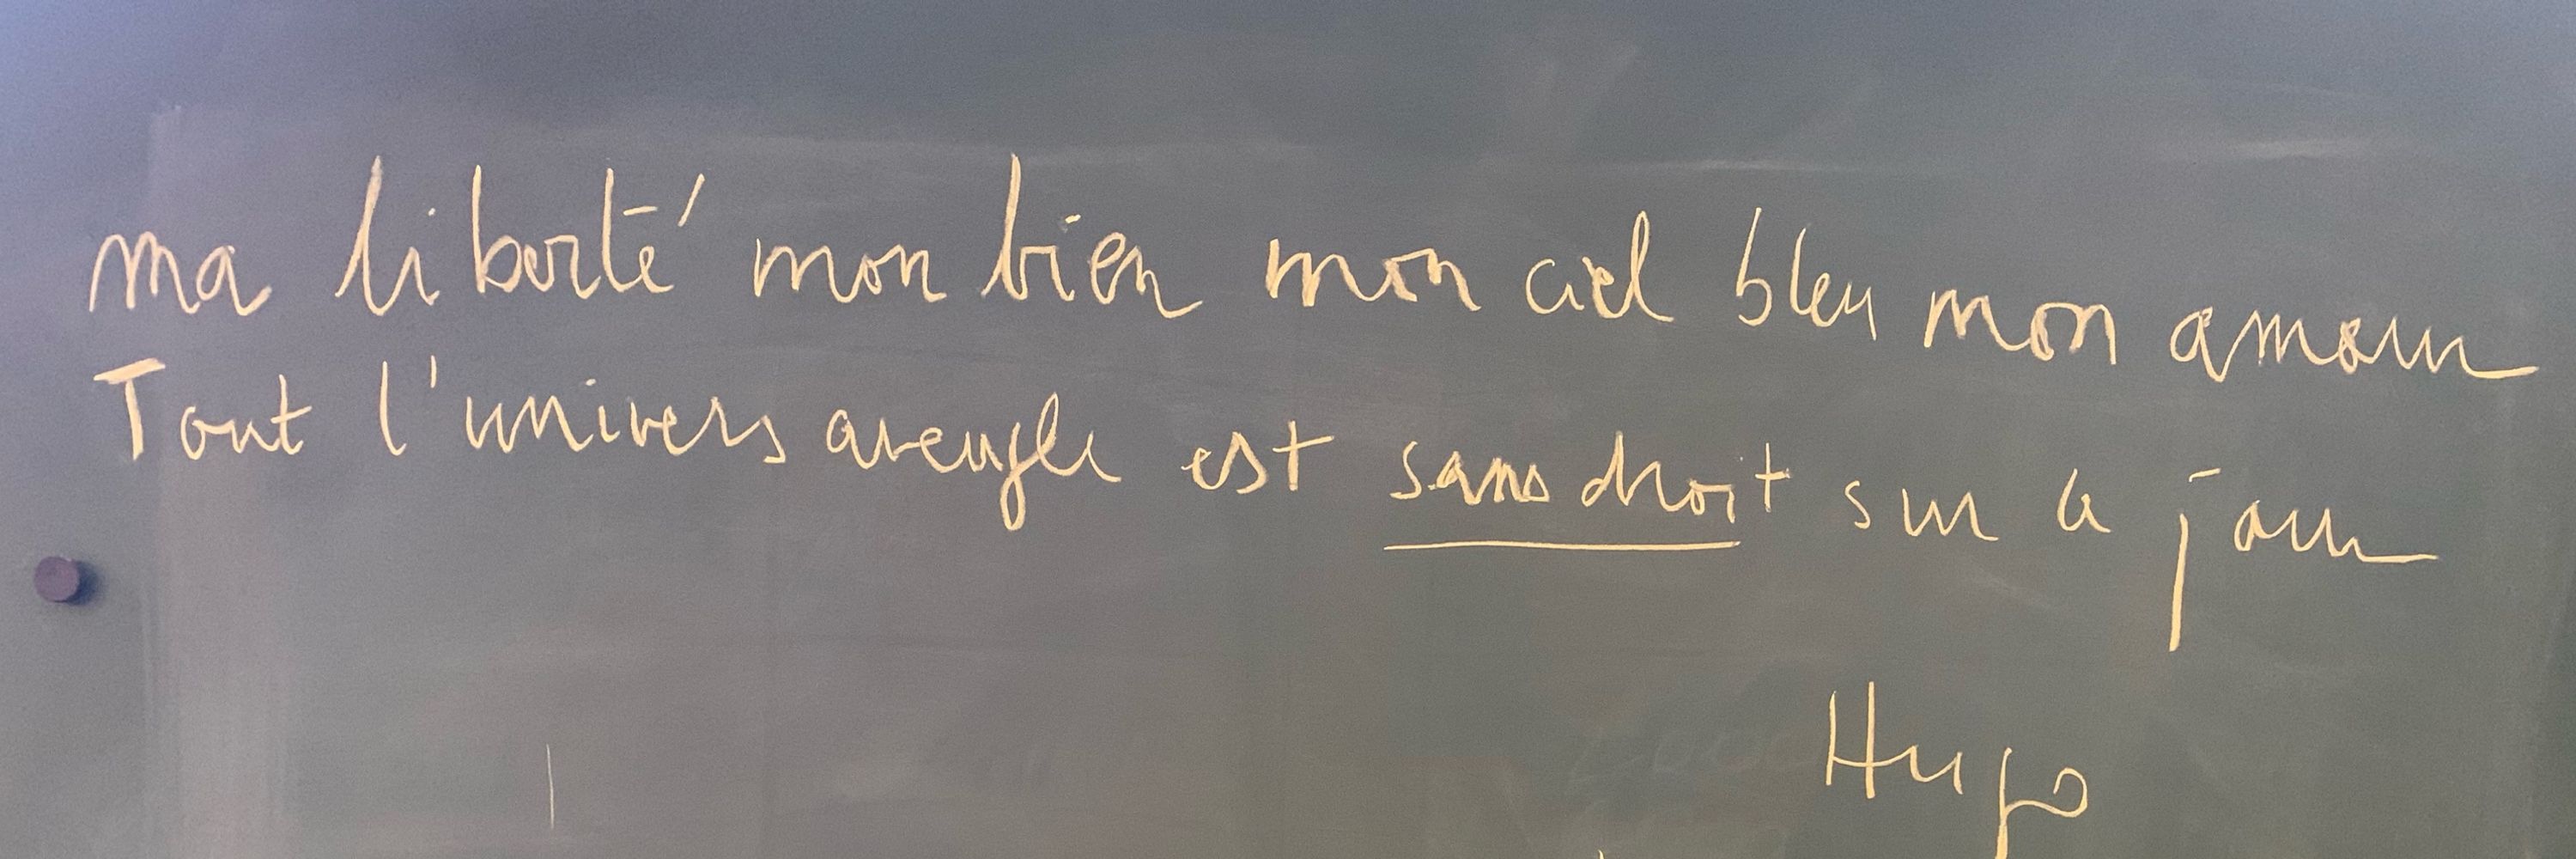 ma liberté mon bien mon ciel bleu mon amour
Tout l'univers aveugle est sans droit sur le jour
Hugo